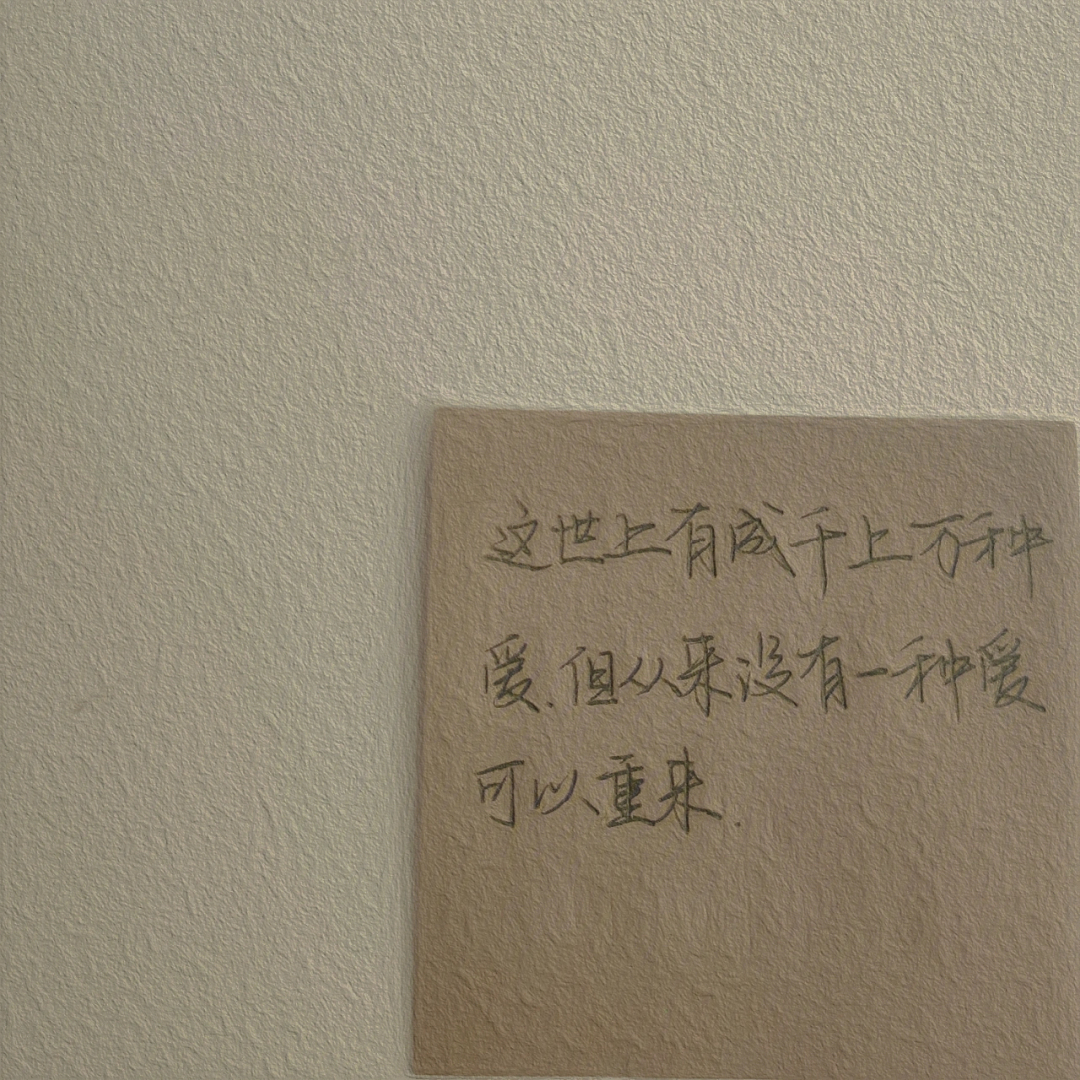 这世上有成千上万种
爱.但从来没有一种爱
可以重来.